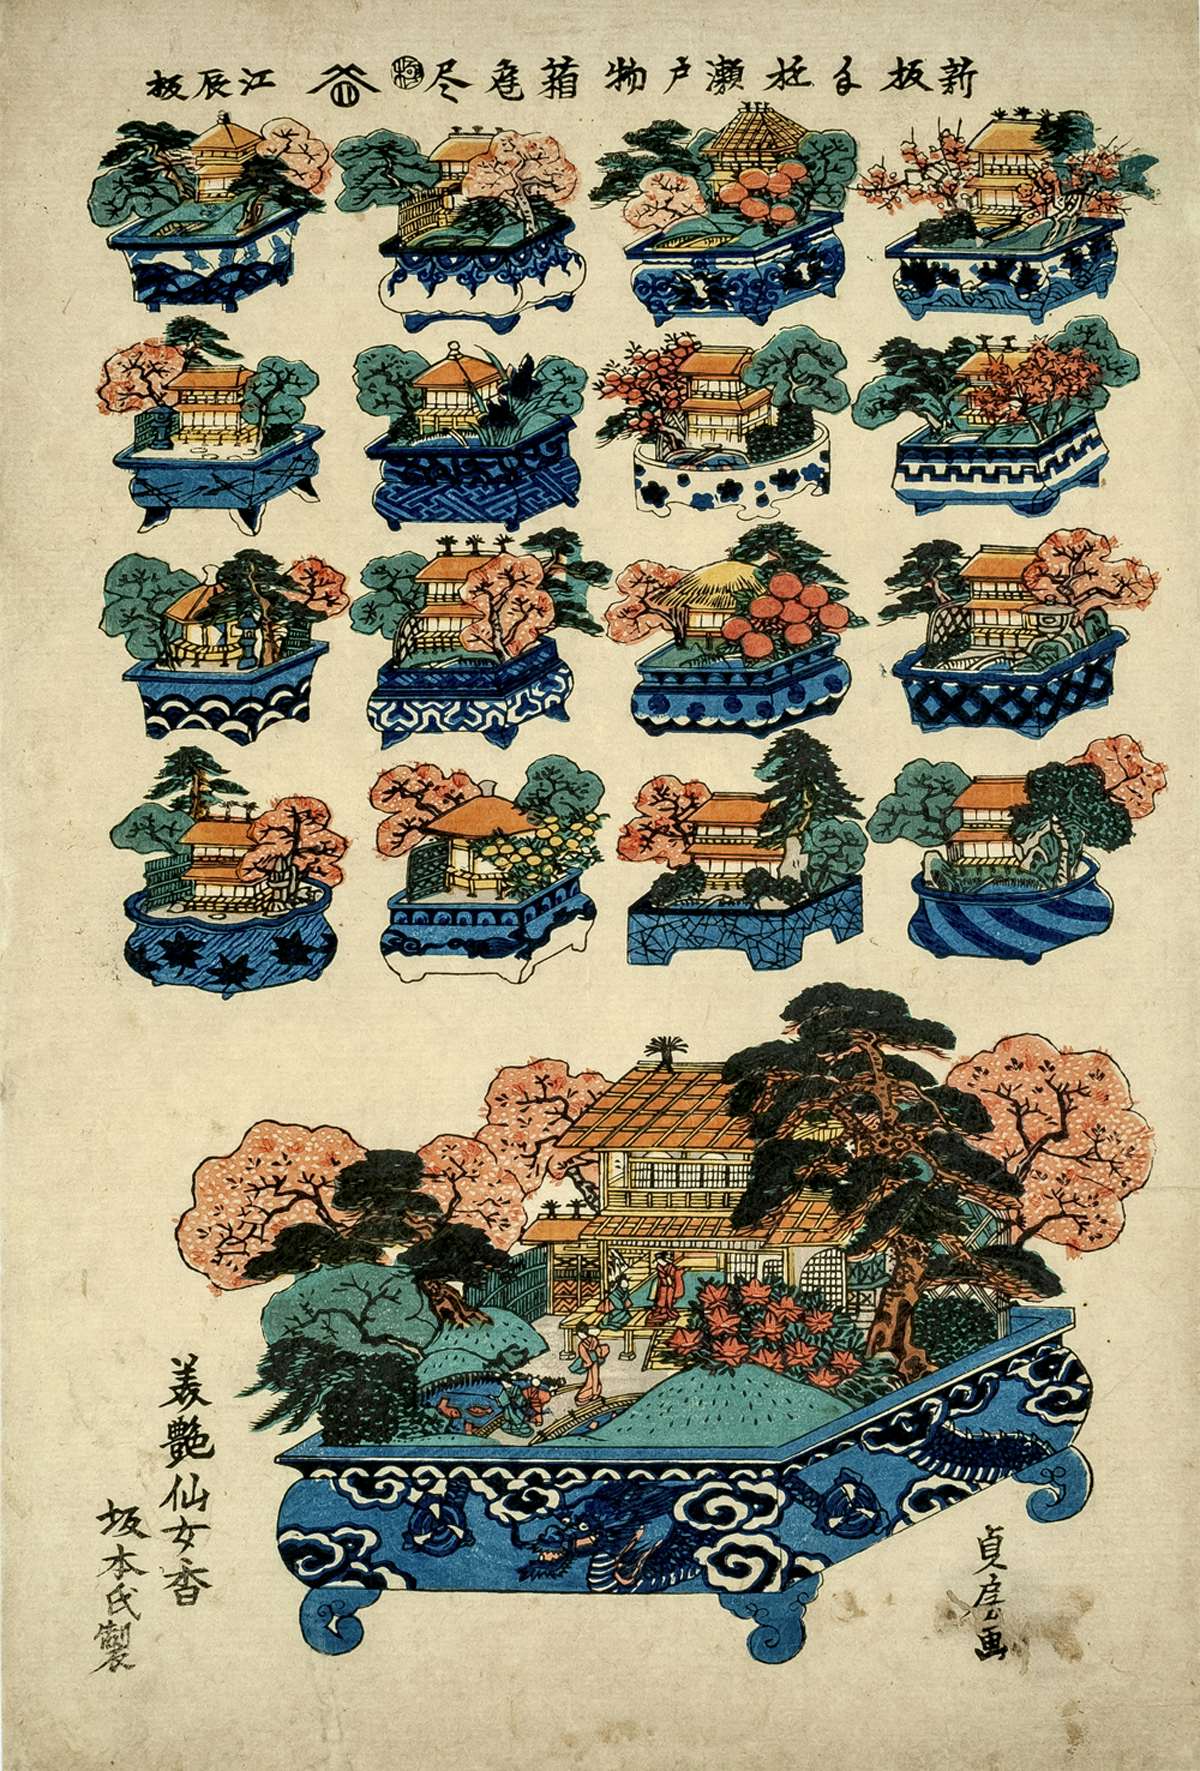 新板手遊瀬戸物箱庭尽
極
江辰板
貞房画
美艶仙女香
坂本氏製